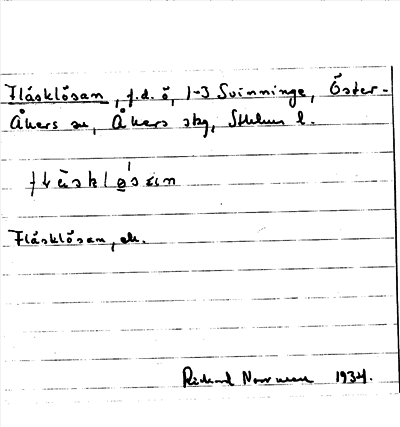 Flåsklösan, f.d. ö, 1-3 Svinninge, Öster-
Åkers sn, Åkers skg, Sthlms l.
Flåsklösan, ek.
Rickard Norrman 1934.